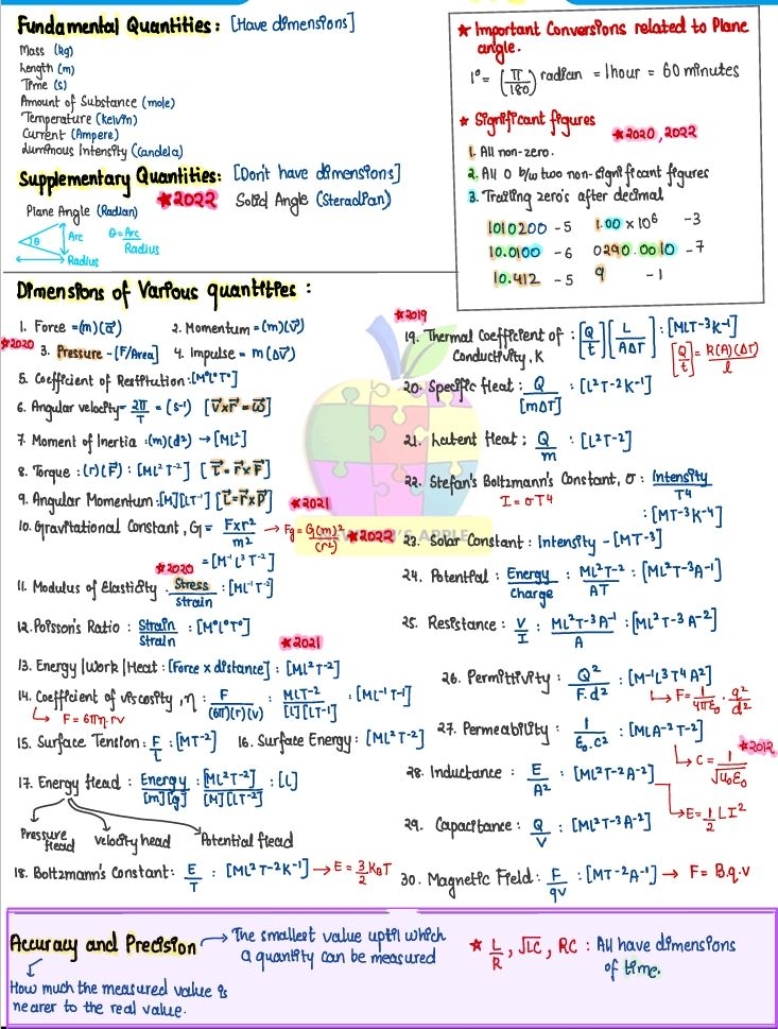 Fundamental Quantities: [Have dimensions]
Mass (kg)
Length (m)
Time (s)
Amount of Substance (mole)
Temperature (kelvin)
Current (Ampere)
Luminous Intensity (Candela)
Supplementary Quantities: [Don't have dimensions]
★2022 Solid Angle (Steradian)
Plane Angle (Radian)
θ Arc θ = Arc/Radius
Radius
★ Important Conversions related to Plane
angle.
1° = (π/180) radian = 1hour = 60 minutes
★ Significant figures
★2020, 2022
1. All non-zero.
2. All 0 b/w two non-significant figures
3. Trailing zero's after decimal
1010200 - 5 1.00 × 10⁶ - 3
10.0100 - 6 0290.0010 - 7
10.412 - 5 9 - 1
Dimensions of Various quantities :
1. Force = (m)(a⃗) 2. Momentum = (m)(v⃗)
★2020 3. Pressure - [F/Area] 4. Impulse = m(Δv⃗)
5. Coefficient of Restitution : [M°L°T°]
6. Angular velocity = 2π/T = (s⁻¹) [v⃗ x r⃗ = ω⃗]
7. Moment of Inertia : (m)(d²) → [ML²]
8. Torque : (r)(F⃗) : [ML²T⁻²] [τ⃗ = r⃗ x F⃗]
9. Angular Momentum : [M][LT⁻¹] [L⃗ = r⃗ x p⃗]
★2021
10. Gravitational Constant, G = F x r²/m² → Fg = G(m)²/(r²) ★2022
= [M⁻¹L³T⁻²]
★2020
11. Modulus of Elasticity . Stress/Strain : [ML⁻¹T⁻²]
12. Poisson's Ratio : Strain/Strain : [M°L°T°]
★2021
13. Energy | Work | Heat : [Force x distance] : [ML²T⁻²]
14. Coefficient of viscosity, η : F/(6π)(r)(v) : MLT-2/[L][LT-1] : [ML⁻¹T-1]
↳ F = 6πη rv
15. Surface Tension : F/L : [MT-2] 16. Surface Energy : [ML²T-2]
17. Energy Head : Energy/[m][g] : [ML²T-2]/[M][LT-2] : [L]
Pressure Head Velocity head Potential Head
18. Boltzmann's Constant : E/T : [ML²T-2K-1] → E = 3/2 KBT
★2019
19. Thermal Coefficient of : [Q/t][L/AΔT] : [MLT-3K-1]
Conductivity, K [Q/t] = K(A)(ΔT)/l
20. Specific Heat : Q/[mΔT] : [L²T-2K-1]
21. Latent Heat ; Q/m : [L²T-2]
22. Stefan's Boltzmann's Constant, σ : Intensity/T4
I = σT4
: [MT-3K-4]
23. Solar Constant : Intensity - [MT-3]
24. Potential : Energy/Charge : ML²T-2/AT : [ML²T-3A-1]
25. Resistance : V/I : ML²T-3A-1/A : [ML²T-3A-2]
26. Permittivity : Q²/F.d² : [M-1L3T4A²]
↳ F = 1/4πε₀ . q²/d²
27. Permeability : 1/ε₀.C² : [MLA-2T-2]
★2012
↳ C = 1/√μ₀ε₀
28. Inductance : E/A² : [ML²T-2A-2]
→ E = 1/2 LI²
29. Capacitance : Q/V : [ML²T-3A-2]
30. Magnetic Field : F/qv : [MT-2A-1] → F = B.q.v
Accuracy and Precision → The smallest value uptil which
a quantity can be measured
How much the measured value is
nearer to the real value.
★ L/R, √LC, RC : All have dimensions
of time.